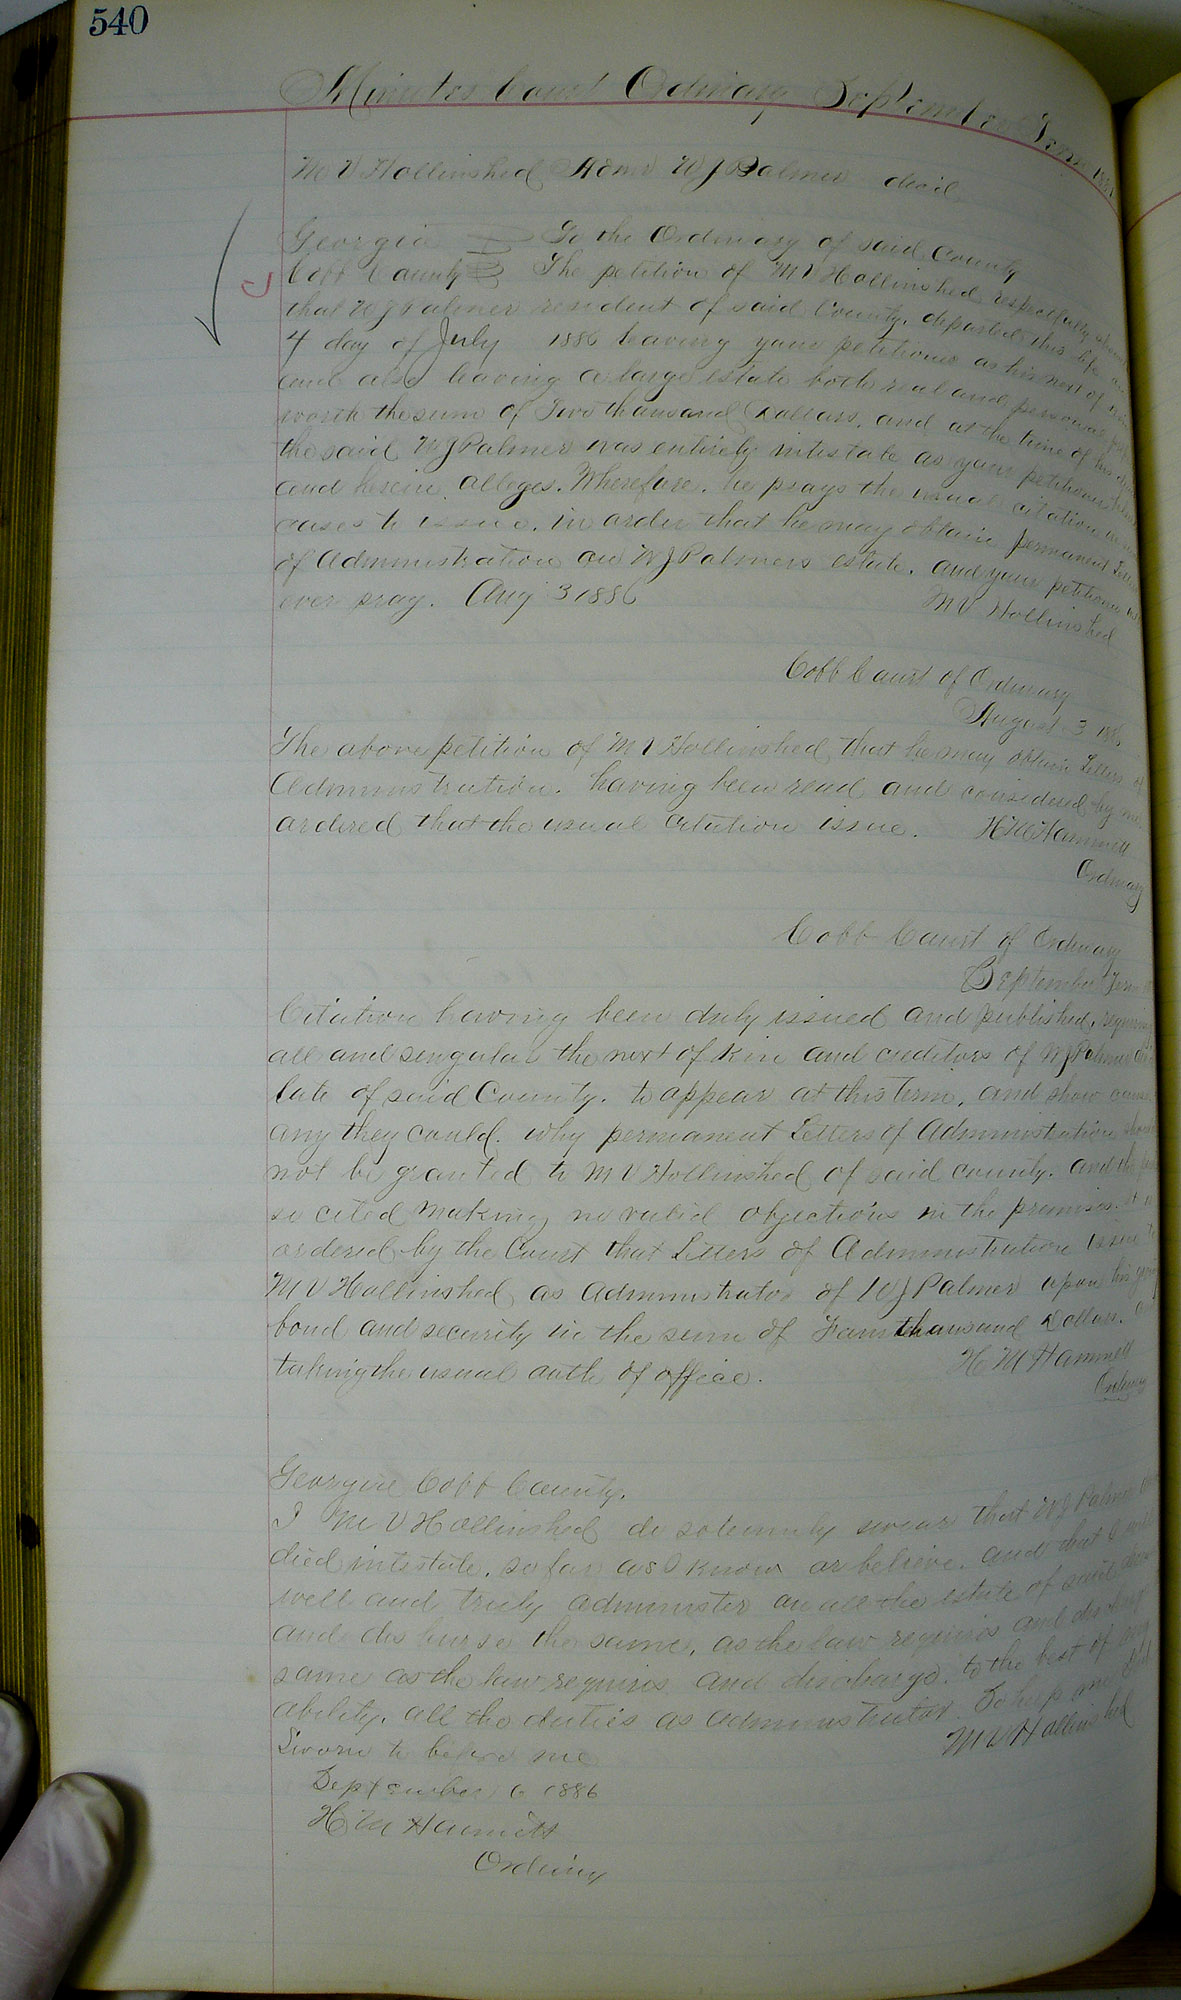 540
Minutes Court Ordinary September Term
M V Hollinshed Admr W J Palmer decd
Georgia To the Ordinary of said County
Cobb County The petition of M V Hollinshed respectfully
that W J Palmer resident of said County, departed this life
4 day of July 1886 leaving your petitioner as his next of kin
and also leaving a large estate both real and personal
worth the sum of Two thousand Dollars, and at the time of his
the said W J Palmer was entirely intestate as your petitioner
and herein alleges. Wherefore, he prays the usual citation
cases to issue, in order that he may obtain permanent
of Administration on W J Palmers estate, and your petitioner
ever pray. Aug 3 1886 M V Hollinshed
Cobb Court of Ordinary
August 3
The above petition of M V Hollinshed that he may obtain Letters of
Administration, having been read and considered by me.
ordered that the usual Citation issue. H M Hammett
Ordinary
Cobb Court of Ordinary
September Term
Citation having been duly issued and published,
all and singular the next of kin and creditors of W J Palmer
late of said County, to appear at this term, and show cause
any they could. why permanent Letters of Administration
not be granted to M V Hollinshed of said county. and
so cited making no valid objections in the premises. it
ordered by the Court that Letters of Administration issue to
M V Hollinshed as Administrator of W J Palmer upon his
bond and security in the sum of Four thousand Dollars.
taking the usual oath of office. H M Hammett
Ordinary
Georgia Cobb County.
I M V Hollinshed do solemnly swear that W J Palmer
died intestate, so far as I know or believe. and that I will
well and truly administer on all the estate of said
and disburse the same, as the law requires and
same as the law requires and discharge, to the best of my
ability, all the duties as administrator. So help me
M V Hollinshed
Sworn to before me
September 6 1886
H M Hammett
Ordinary